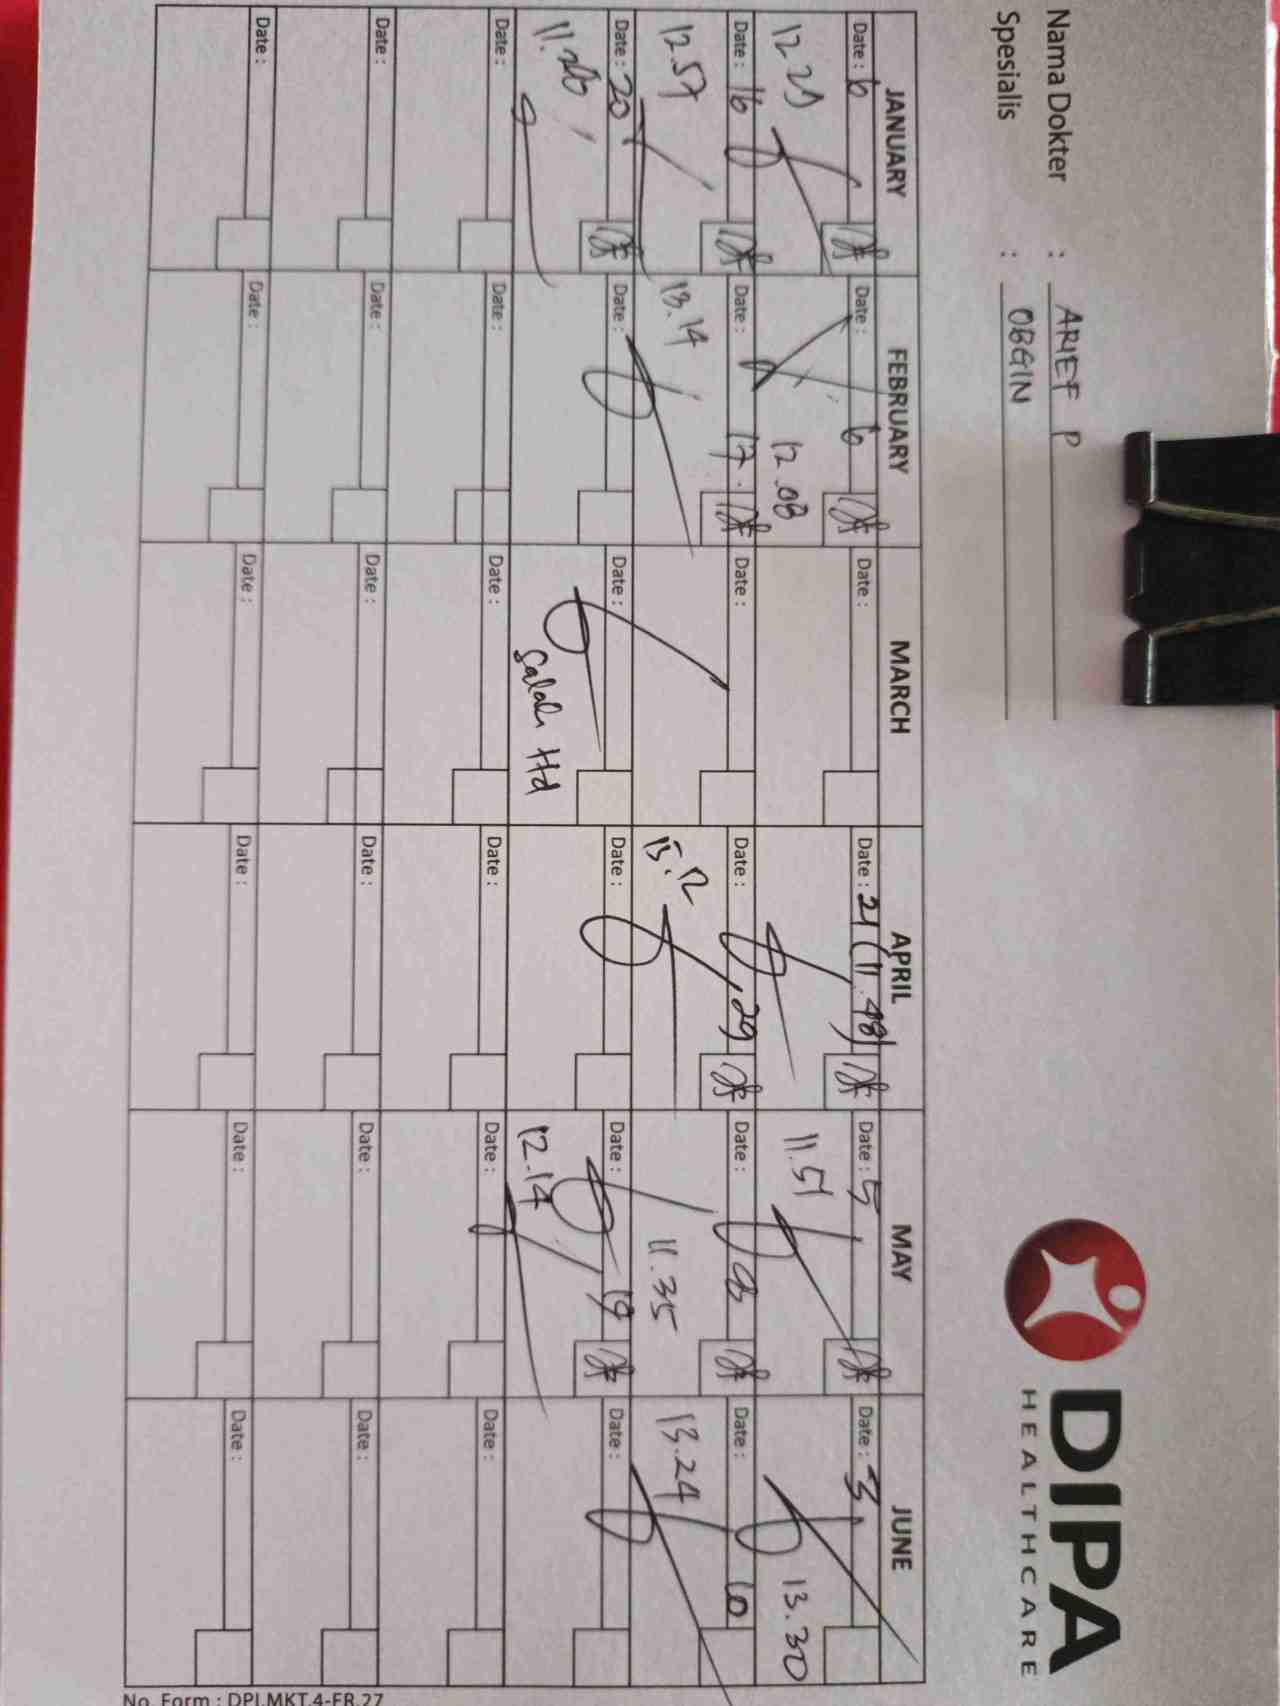 Nama Dokter : ARIEF P
Spesialis : OBGIN
DIPA
HEALTHCARE
JANUARY FEBRUARY MARCH APRIL MAY JUNE
Date : 6 Date : 6 Date : Date : 21 (11.48) Date : 5 Date : 3
12.08 11.51 13.30
Date : 16 Date : 17 Date : Date : 29 Date : Date : 10
12.57 13.14 13.12 11.35 13.24
Date : 20 Date : Date : Date : Date : 19 Date :
Salah Hd 12.14
Date : Date : Date : Date : Date : Date :
Date : Date : Date : Date : Date : Date :
Date : Date : Date : Date : Date : Date :
No. Form : DPI.MKT.4-FR.27